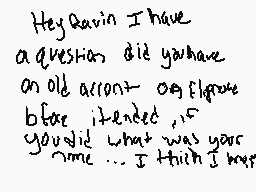 Hey Ravin I have
a question did you have
an old accont on Flipnote
bfore it ended, if
you did what was your
name ... I think I